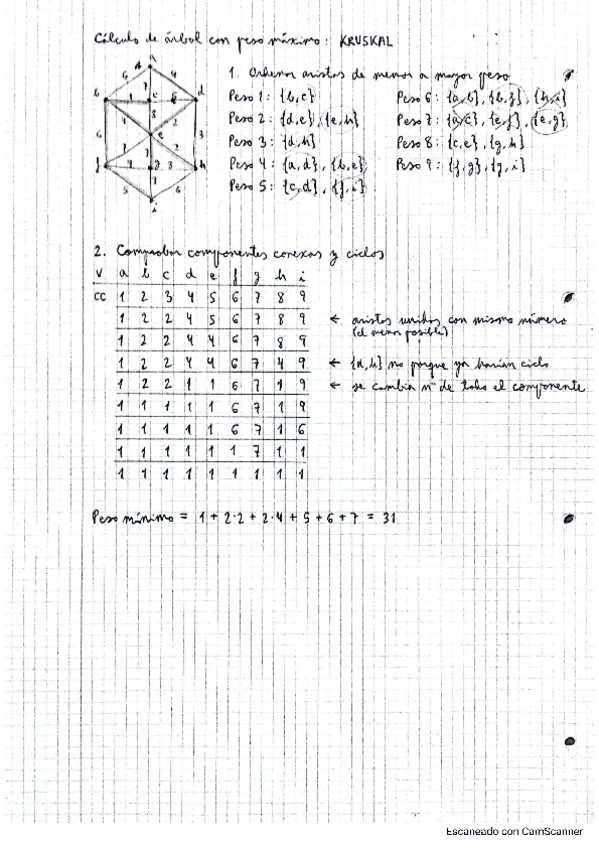 Cálculo de árbol con peso máximo: KRUSKAL
1. Ordenar aristas de menor a mayor peso
Peso 1: {b,c}
Peso 2: {d,e}, {e,h}
Peso 3: {d,h}
Peso 4: {a,d}, {b,e}
Peso 5: {c,d}, {f,i}
Peso 6: {a,b}, {b,f}, {h,i}
Peso 7: {a,c}, {e,f}, {e,g}
Peso 8: {c,e}, {g,h}
Peso 9: {f,g}, {g,i}
2. Comprobar componentes conexas y ciclos
V a b c d e f g h i
CC 1 2 3 4 5 6 7 8 9
1 2 2 4 5 6 7 8 9 ← aristas unidas con mismo número
(el menor posible)
1 2 2 4 4 6 7 8 9
1 2 2 4 4 6 7 4 9 ← {d,h} no porque ya harían ciclo
1 2 2 1 1 6 7 1 9 ← se cambia nº de todo el componente
1 1 1 1 1 6 7 1 9
1 1 1 1 1 6 7 1 6
1 1 1 1 1 1 7 1 1
1 1 1 1 1 1 1 1 1
Peso mínimo = 1 + 2·2 + 2·4 + 5 + 6 + 7 = 31
Escaneado con CamScanner